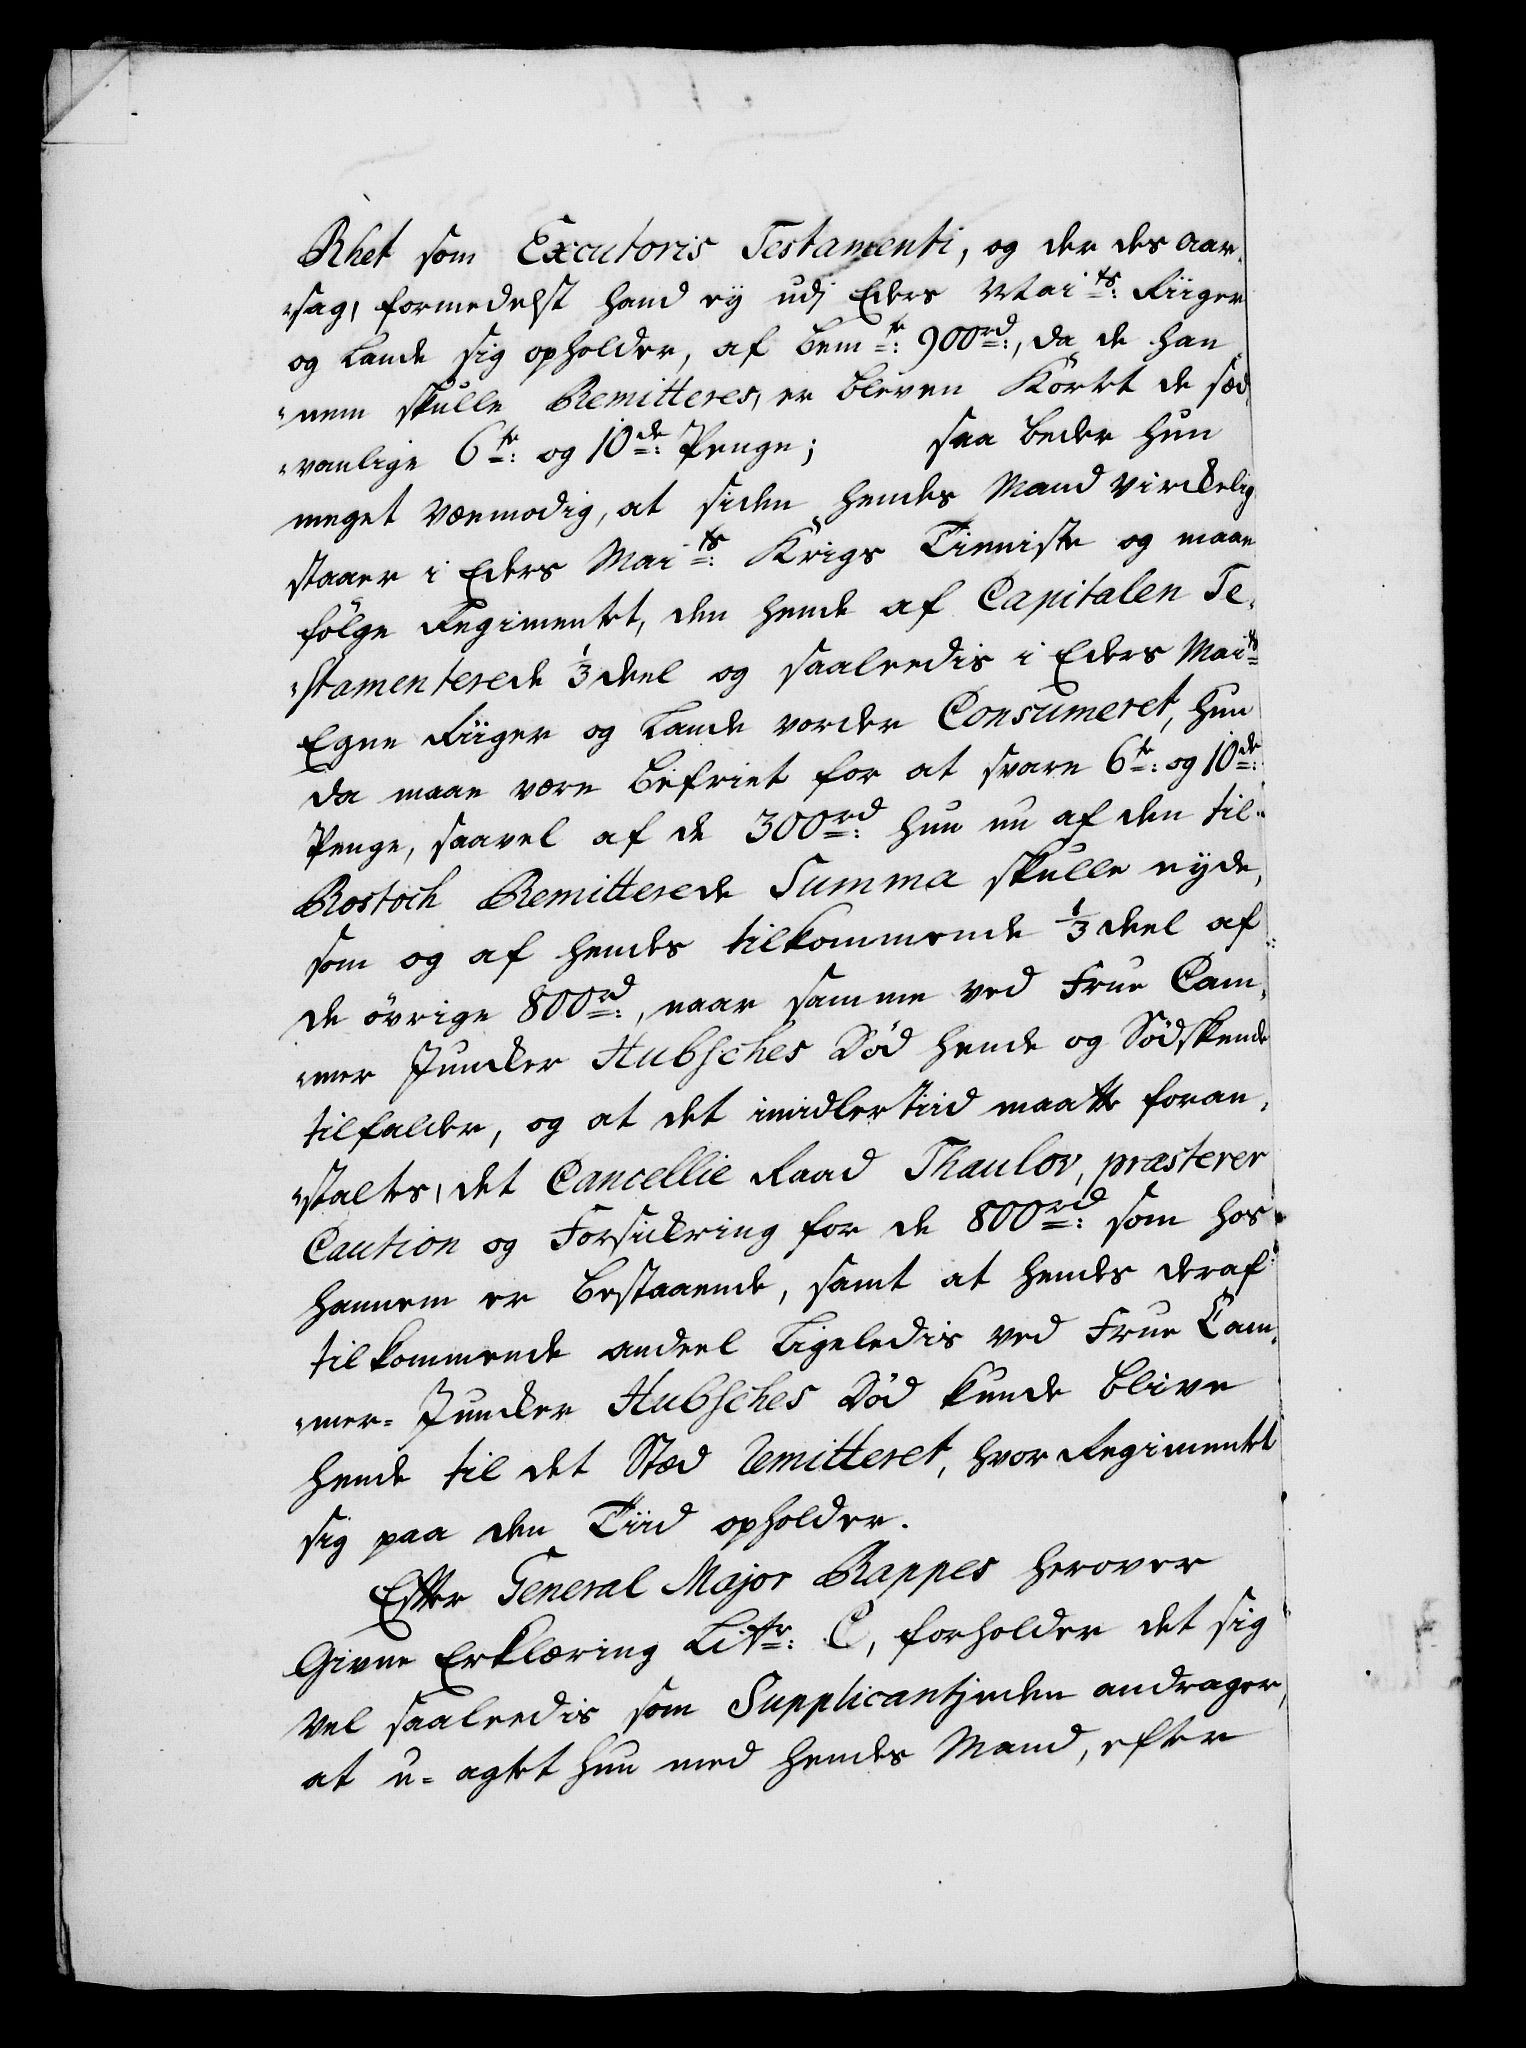 Rhet som Excutoris Testamenti, og der des Aar,
„sag, formedelst hand ey udj Eders Mai ts: Riiger
og Lande sig opholder, af bem te: 900 rd:, da de han
„nem skulle Remitteres, er bleven Kortet de sæd
„vanlige 6 te: og 10 de: Penge; saa beder hun
meget væemodig, at siden hendes Mand virckelig
staaer i Eders Mai ts: Krigs Tienniste og maae
følge Regimentet, den hende af Capitalen Te,
„stamenterede 1/3 deel og saaleedis i Eders Mai ts
Egne Riiger og Lande vorder Consumeret, hun
da maae være befriet for at svare 6 te: og 10 de:
Penge, saavel af de 300 rd: hun nu af den til
Rostoch Remitterede Summa skulle nyde,
som og af hendes tilkommende 1/3 deel af
de övrige 800 rd:, naar samme ved Frue Cam,
„mer Juncker Hubsches Död hende og Södskende
tilfalder, og at det imidlertiid maatte foran,
„staltes, det Cancellie Raad Thaulov, præsterer
Caution og Forsickring for de 800 rd: som hos
hannem er bestaaende, samt at hendes deraf
tilkommende andeel Ligeledis ved Frue Cam,
„mer= Juncker Hubsches Död kunde blive
hende til det Stæd remitteret, hvor Regimentet
sig paa den Tiid opholder.
Efter General Major Rappes herover
Givne Erklæring Litr: C, forholder det sig
vel saaleedis som Supplicantjnden andrager,
at u= agtet hun med hendes Mand, efter